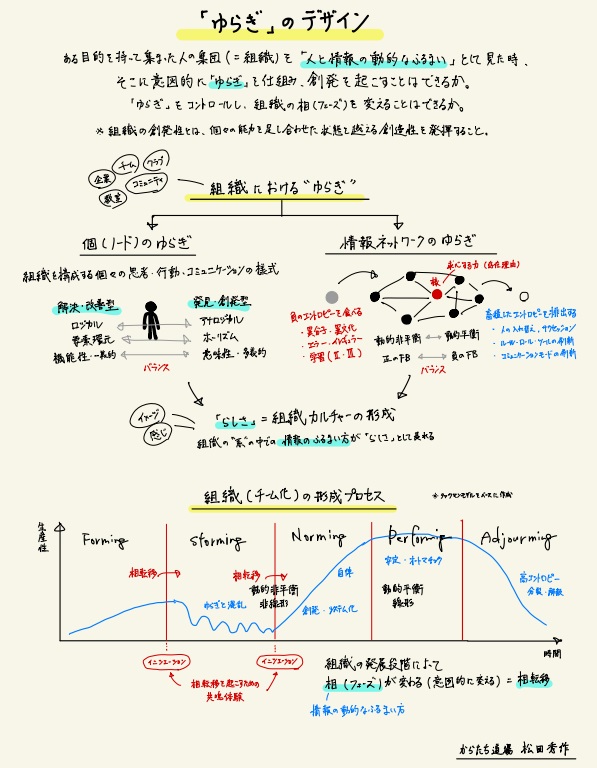 「ゆらぎ」のデザイン
ある目的を持って集まった人の集団(=組織)を「人と情報の動的なふるまい」として見た時、
そこに意図的に「ゆらぎ」を仕組み、創発を起こすことはできるか。
「ゆらぎ」をコントロールし、組織の相(フェーズ)を変えることはできるか。
※ 組織の創発性とは、個々の能力を足し合わせた状態を越える創造性を発揮すること。
企業
チーム
クラブ
教室
コミュニティ
組織における"ゆらぎ"
個(ノード)のゆらぎ
組織を構成する個々の思考・行動・コミュニケーションの様式
解決・改善型
発見・創発型
ロジカル
アナロジカル
要素還元
ホーリズム
機能性・一義的
意味性・多義的
バランス
情報ネットワークのゆらぎ
求心する力(存在理由)
核
負のエントロピーを食べる
・異分子・異文化
・エラー・イレギュラー
・学習(Ⅱ・Ⅲ)
動的非平衡
動的平衡
正のFB
負のFB
バランス
蓄積したエントロピーを排出する
・人の入れ替え、サクセッション
・ルール・ロール・ツールの刷新
・コミュニケーションモードの刷新
イメージ
感じ
「らしさ」=組織カルチャーの形成
組織の"系"の中での情報のふるまい方が「らしさ」として表れる
組織(チーム化)の形成プロセス
※タックマンモデルをベースに作成
生産性
Forming
Storming
Norming
Performing
Adjourning
相転移
相転移
ゆらぎと混乱
動的非平衡
非線形
自律
創発・システム化
安定・オートマチック
動的平衡
線形
高エントロピー
分裂・解散
時間
イニシエーション
イニシエーション
相転移を起こすための
共鳴体験
組織の発展段階によって
相(フェーズ)が変わる(意図的に変える)=相転移
情報の動的なふるまい方
からたち道場 松田秀作